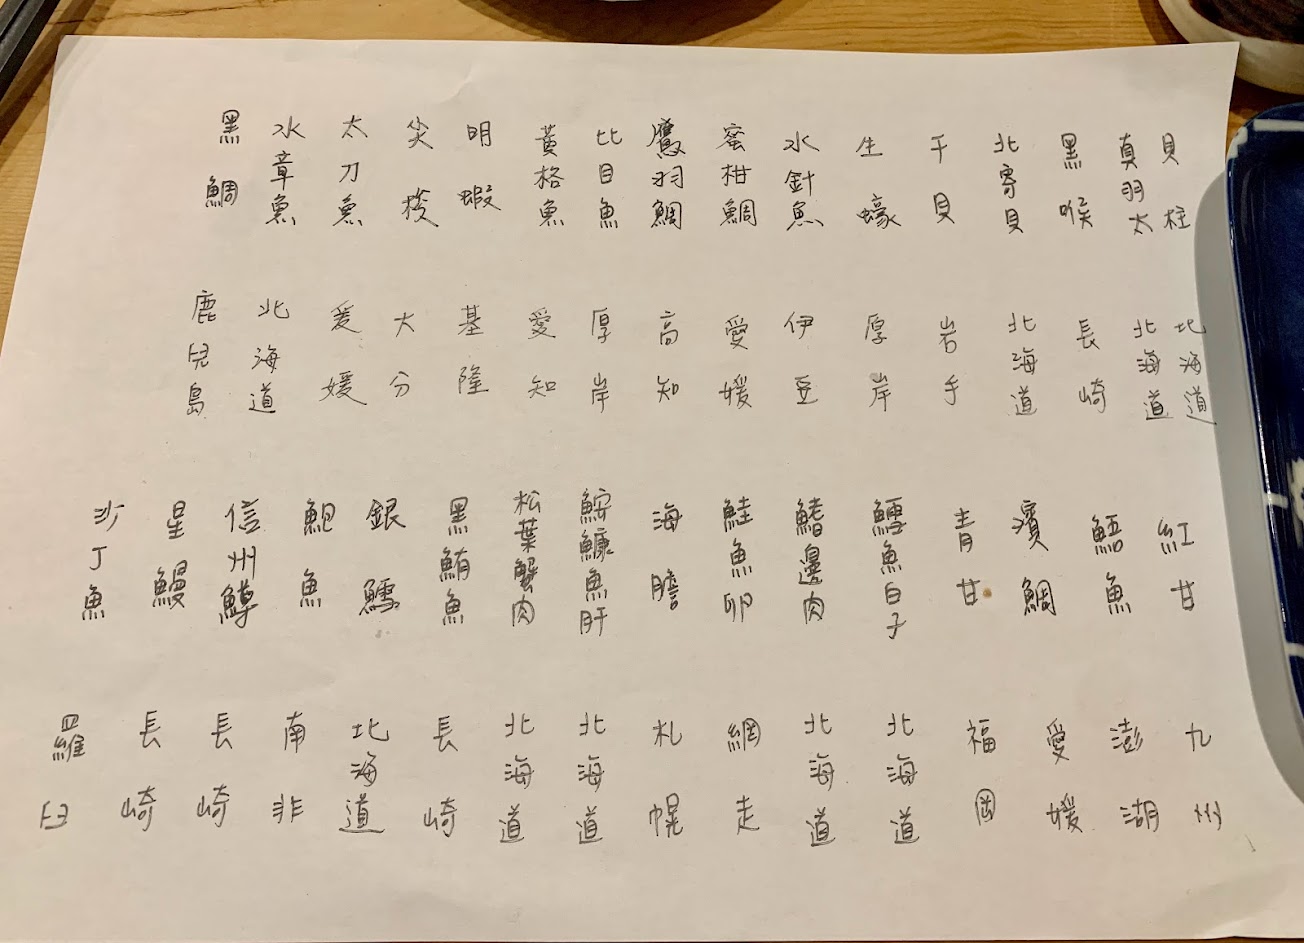 貝柱
真羽太
黑喉
北寄貝
干貝
生蠔
水針魚
蜜柑鯛
鷹羽鯛
比目魚
黃格魚
明蝦
尖梭
太刀魚
水章魚
黑鯛
北海道
北海道
長崎
北海道
岩手
厚岸
伊豆
愛媛
高知
厚岸
愛知
基隆
大分
爰媛
北海道
鹿兒島
紅甘
鯃魚
濱鯛
青甘
鱈魚白子
鰭邊肉
鮭魚卵
海膽
鮟鱇魚肝
松葉蟹肉
黑鮪魚
銀鱈
鮑魚
信州鱒
星鰻
沙丁魚
九州
澎湖
愛媛
福岡
北海道
北海道
網走
札幌
北海道
北海道
長崎
北海道
南非
長崎
長崎
羅臼